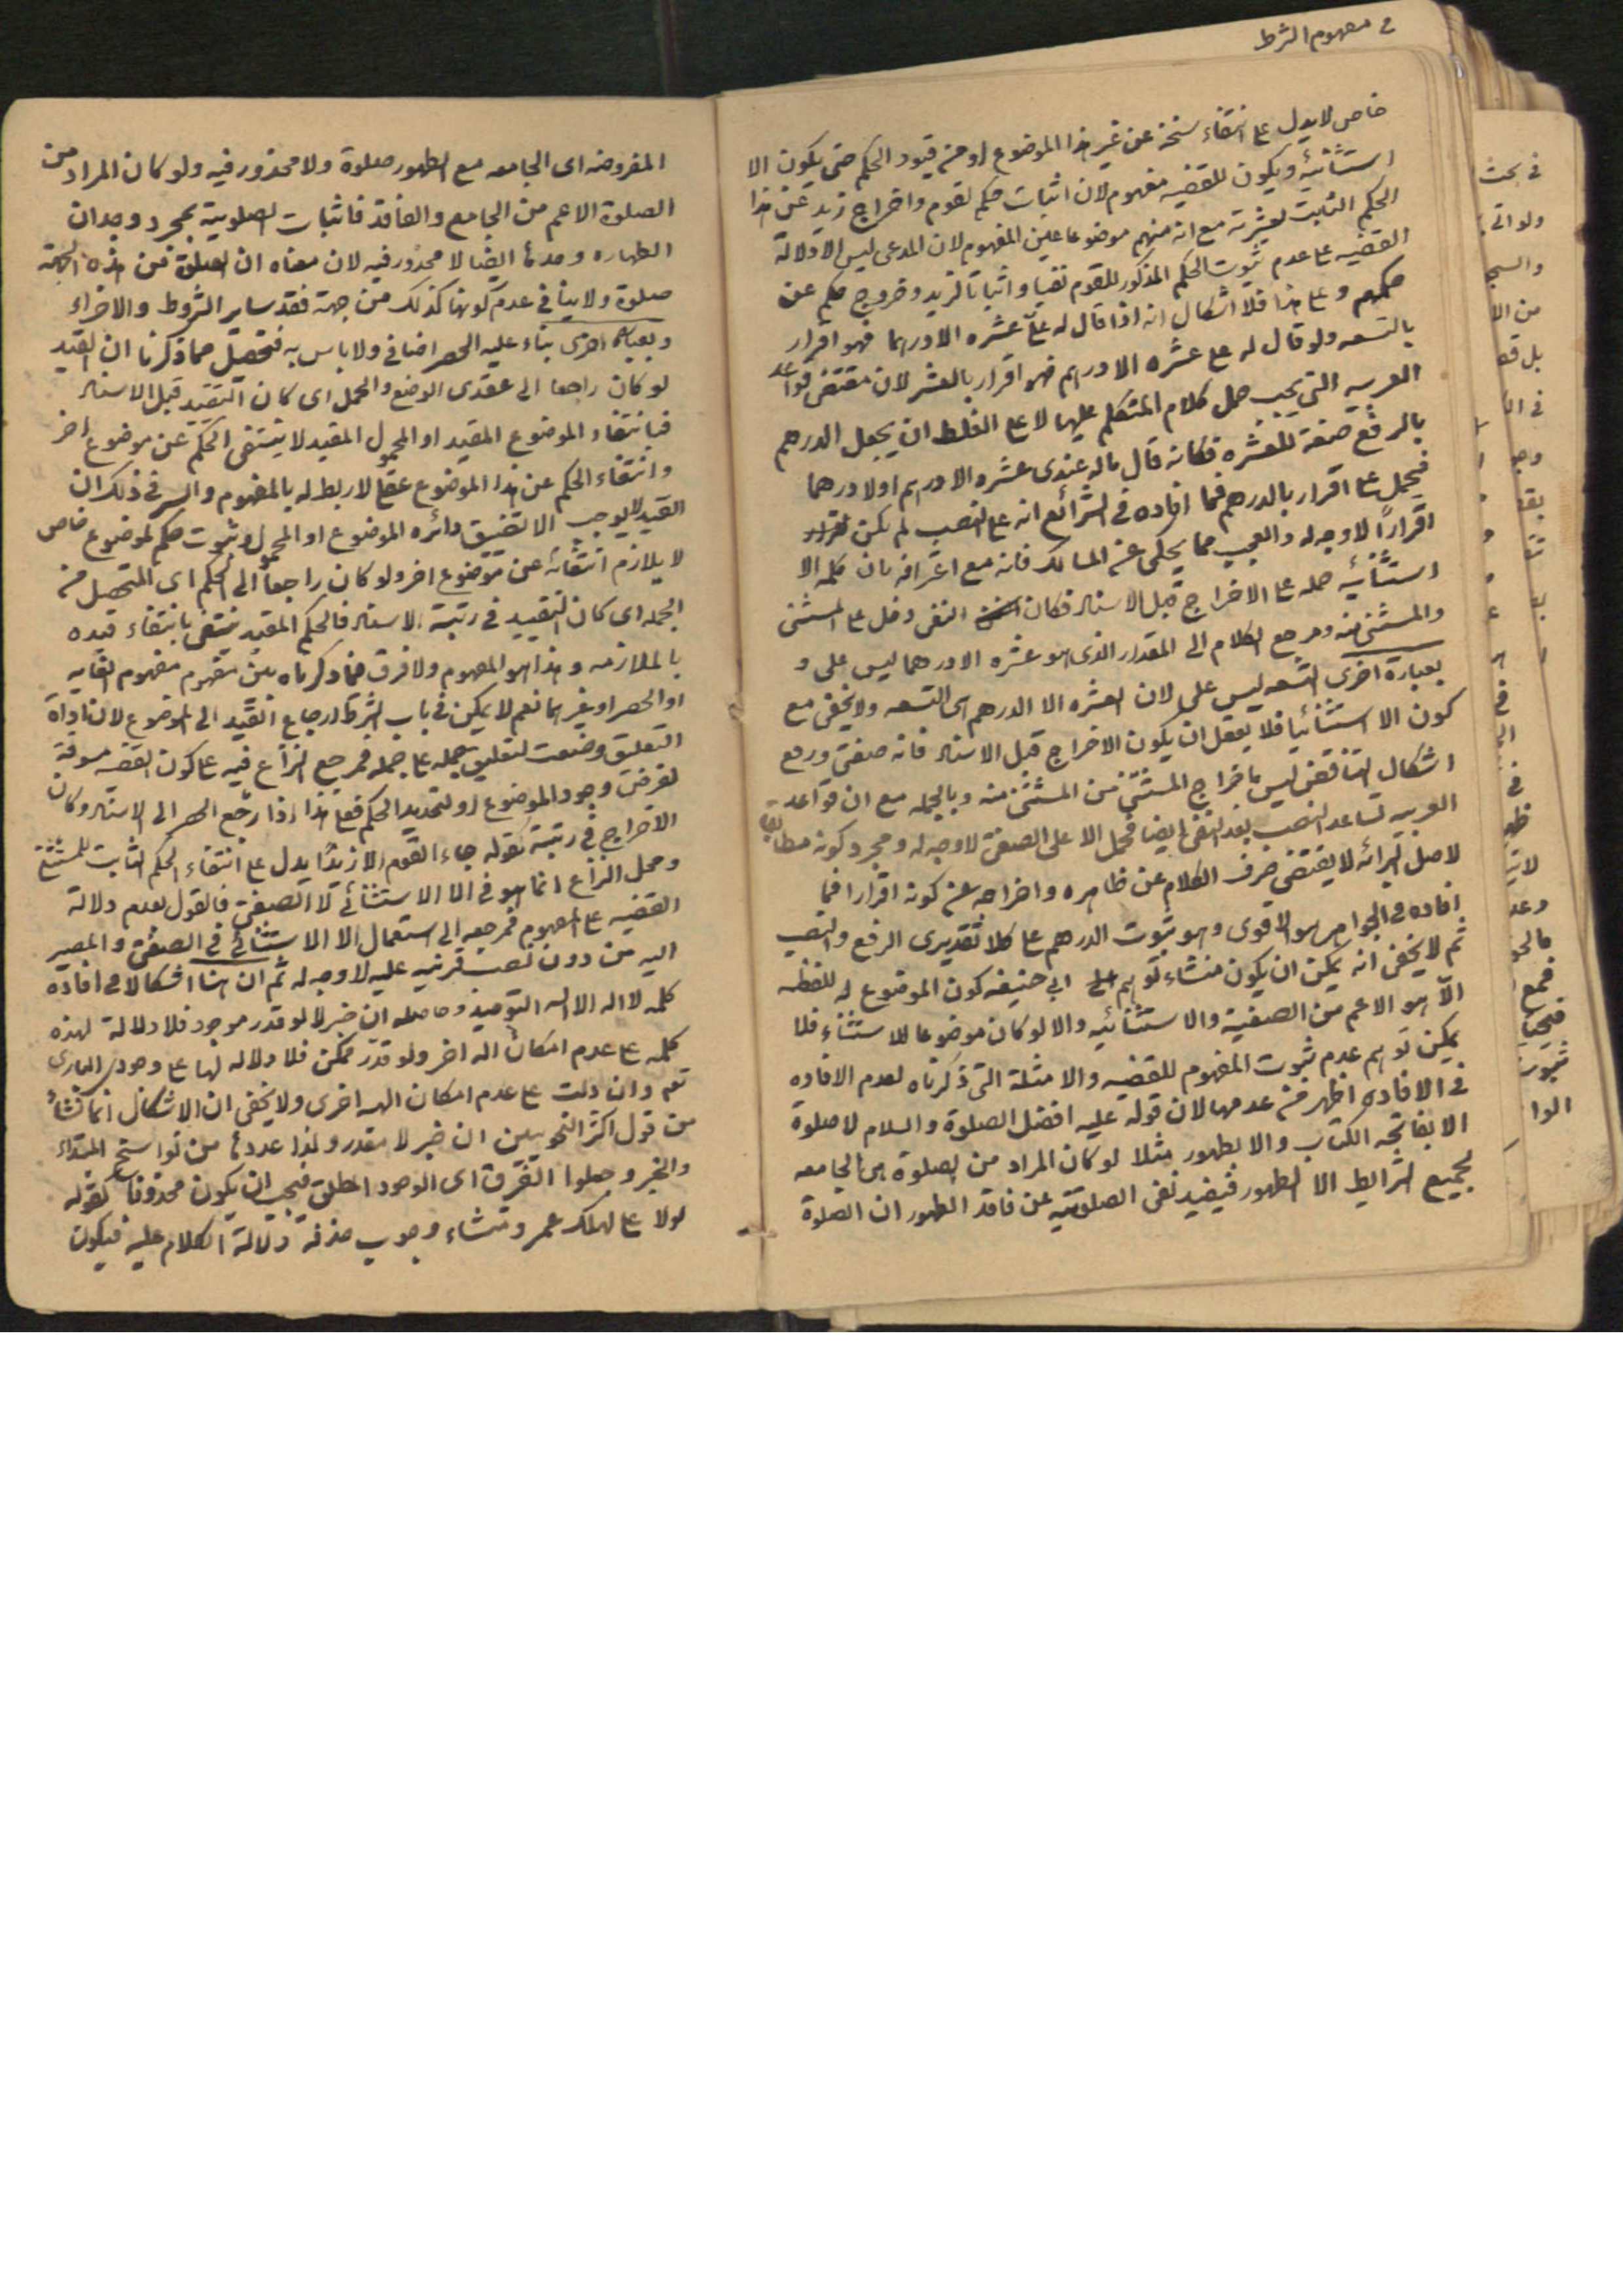 في مفهوم الشرط
خاص لا يدل على انتفاء سنخه عن غير هذا الموضوع او من قيود الحكم حتى يكون الا
استثنائية ويكون للقضيه مفهوم لان اثبات حكم لقوم واخراج زيد عن هذا
الحكم الثابت لعشرته مع انه منهم موضوعا عين المفهوم لان المدعى ليس الا دلالة
القضيه على عدم ثبوت الحكم المذكور للقوم نفيا واثباتا لزيد وخروج حكمه عن
حكمهم وعلى هذا فلا اشكال انه اذا قال له علىّ عشره الا درهما فهو اقرار
بالتسعه ولو قال له على عشره الا درهم فهو اقرار بالعشر لان مقتضى قواعد
العربيه التي يجب حمل كلام المتكلم عليها لا على الغلط ان يجعل الدرهم
بالرفع صفة للعشره فكانه قال ماله عندى عشره الا درهم اولا درهما
فيحمل على اقرار بالدرهم فما افاده في الشرائع انه على النصب لم يكن
اقراراً لا وجه له والعجب مما يحكى عن المسالك فانه مع اعترافه بان كلمه الا
استثنائيه حمله على الاخراج قبل الاسناد فكان النفى دخل على المستثنى
والمستثنى منه ومرجع الكلام الى المقدار الذى هو عشره الا درهما ليس على و
بعبارة اخرى التسعه ليس على لان العشره الا الدرهم هى التسعه ولا يخفى مع
كون الا استثنائيا فلا يعقل ان يكون الاخراج قبل الاسناد فانه صفتى ورفع
اشكال التناقض ليس باخراج المستثنى من المستثنى منه وبالجمله مع ان قواعد
العربيه تساعد النصب بعد النفى ايضا فحمل الا على الصفتى لا وجه له ومجرد كونه مطابقا
لاصل البرائه لا يقتضى صرف الكلام عن ظاهره واخراجه عن كونه اقرارا فما
افاده في الجواهر هو الاقوى وهو ثبوت الدرهم على كلا تقديرى الرفع والنصب
ثم لا يخفى انه يمكن ان يكون منشاء توهم ابى حنيفه كون الموضوع له للفظه
الاّ هو الاعم من الصفتية والاستثنائيه والا لو كان موضوعا للاستثناء فلا
يمكن توهم عدم ثبوت المفهوم للقضيه والامثلة التى ذكرناه لعدم الافاده
في الافاده اظهر من عدمها لان قوله عليه افضل الصلوة والسلام لا صلوة
الا بفاتحه الكتاب والا بطهور مثلا لو كان المراد من الصلوة هى الجامعه
لجميع الشرايط الا الطهور فيفيد نفى الصلوتيه عن فاقد الطهور ان الصلوة
المفروضه اى الجامعه مع الطهور صلوة ولا محذور فيه ولو كان المراد من
الصلوة الاعم من الجامع والفاقد فاثبات الصلوتية بمجرد وجدان
الطهاره وحدها ايضا لا محذور فيه لان معناه ان الصلوة من هذه الجهة
صلوة ولا ينافى عدم كونها كذلك من جهة فقد ساير الشروط والاجزاء
وبعباره اخرى بناء عليه الحصر اضافى ولا باس به فتحصل مما ذكرنا ان القيد
لو كان راجعا الى عقدى الوضع والحمل اى كان التقييد قبل الاسناد
فبانتفاء الموضوع المقيد او المحمول المقيد لا ينتفى الحكم عن موضوع اخر
وانتفاء الحكم عن هذا الموضوع عقلا لا ربط له بالمفهوم والسر في ذلك ان
القيد لا يوجب الا تضييق دائره الموضوع او المحمول وثبوت حكم لموضوع خاص
لا يلازم انتفائه عن موضوع اخر ولو كان راجعاً الى الحكم اى المتحصل من
الجمله اى كان التقييد في رتبة الاسناد فالحكم المقيد ينتفى بانتفاء قيده
بالملازمه وهذا هو المفهوم ولا فرق فيما ذكرناه بين مفهوم مفهوم الغايه
او الحصر او غيرهما نعم لا يمكن في باب الشرط ارجاع القيد الى الموضوع لان اداة
التعليق وضعت لتعليق جمله على جمله فمرجع النزاع فيه على كون القضيه سوقة
لفرض وجود الموضوع او لتحديد الحكم فعلى هذا اذا رجع الحصر الى الاسناد وكان
الاخراج في رتبة كقوله جاء القوم الا زيدًا يدل على انتفاء الحكم الثابت للمستثنى
ومحل النزاع انما هو في الا الاستثنائى لا الصفتى فالقول بعدم دلالة
القضيه على المفهوم فمرجعه الى استعمال الا الاستثنائى في الصفتى والمصير
اليه من دون نصب قرينه عليه لا وجه له ثم ان هنا اشكالا في افادة
كلمه لا اله الا الله التوحيد وحاصله ان خبر لا لو قدر موجود فلا دلالة لهذه
كلمه على عدم امكان اله اخر ولو قدّر ممكن فلا دلاله لها على وجود البارى
تعه وان دلت على عدم امكان الهه اخرى ولا يخفى ان الاشكال انما نشأ
من قول اكثر النحويين ان خبر لا مقدر ولهذا عددها من نواسخ المبتداء
والخبر وجعلوا الظرف اى الوجود المطلق فيجب ان يكون محذوفا كقوله
لولا على لهلك عمر ومنشاء وجوب حذفه دلالة الكلام عليه فيكون
في بحث
ولو اتى
من الا
بل قد
في ال